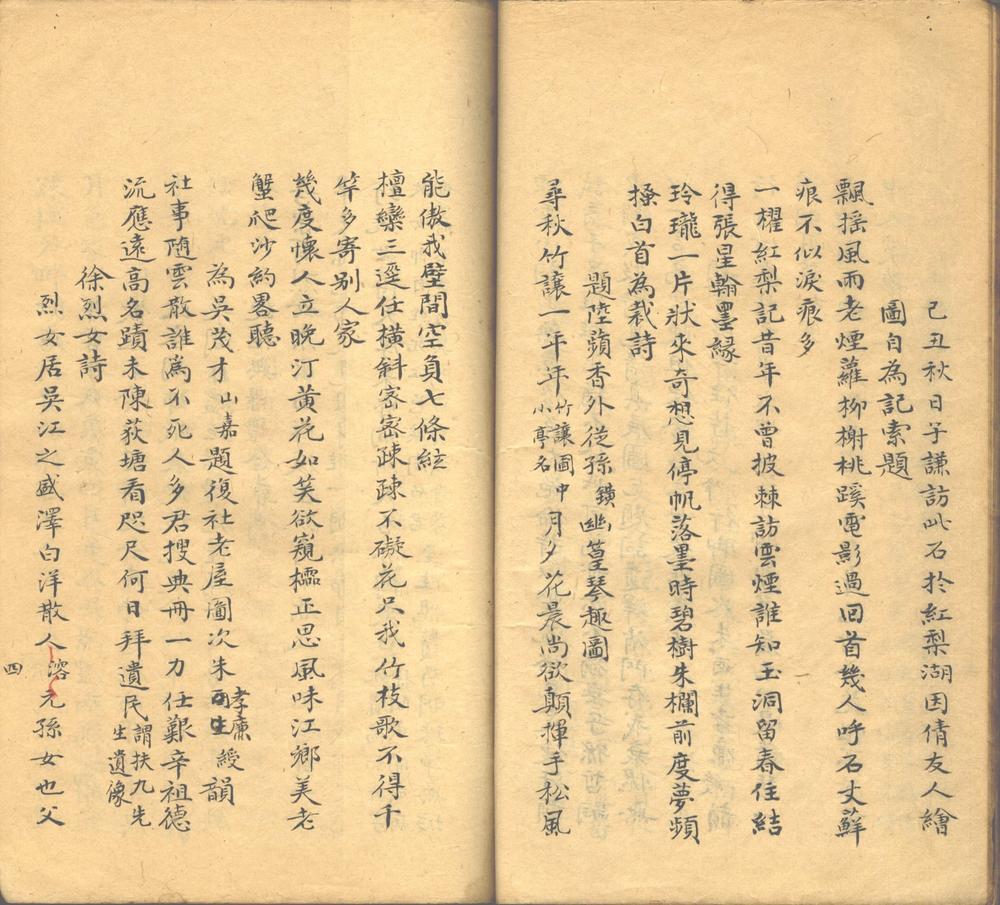 己丑秋日子謙訪此石於紅梨湖因倩友人繪
圖自為記索題
飄搖風雨老煙蘿柳榭桃蹊電影過回首幾人呼石丈蘚
痕不似淚痕多
一櫂紅梨記昔年不曾披棘訪雲煙誰知玉洞留春住結
得張星翰墨緣
玲瓏一片狀來奇想見停帆落墨時碧樹朱欄前度夢蘋
搔白首為裁詩
題陸蘋香外從孫鐄幽篁琴趣圖
尋秋竹讓一年年竹讓圖中小亭名月夕花晨尚欲顛揮手松風
能傲我壁間空負七條絃
檀欒三逕任橫斜密密疎疎不礙花只我竹枝歌不得千
竿多寄別人家
幾度懷人立晚汀黃花如笑欲窺櫺正思風味江鄉美老
蟹爬沙約畧聽
為吳茂才山嘉題復社老屋圖次朱酉生孝廉綬韻
社事隨雲散誰為不死人多君搜典冊一力任艱辛祖德
流應遠高名蹟未陳荻塘看咫尺何日拜遺民謂扶九先生遺像
徐烈女詩
烈女居吳江之盛澤白洋散人溶元孫女也父
四